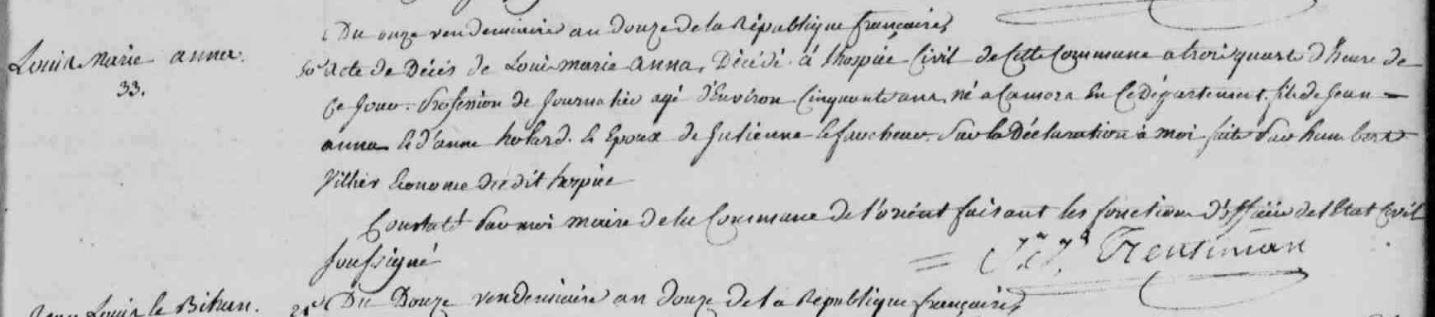 Du onze vendemiaire an douze de la République française,
Louis Marie anna.
33.
20e acte de Décés de Louis marie anna, Décédé à l'hospice Civil de Cette Commune a trois quart d'heure de
Ce Jour. Profession de Journalier agé d'Environ Cinquante ans, né a Camors En Ce Département, fils de Jean
anna & d'anne & Epoux de Julienne le faucheur. Sur la Déclaration à moi faite Par humbert
Villier Econome du dit hospice
Constaté Par moi maire de la Commune de l'orient faisant les fonctions d'officier de l'Etat Civil
soussigné
Trentinian
Louis le Bihan.
21e Du Douze vendemiaire an douze de la République française,